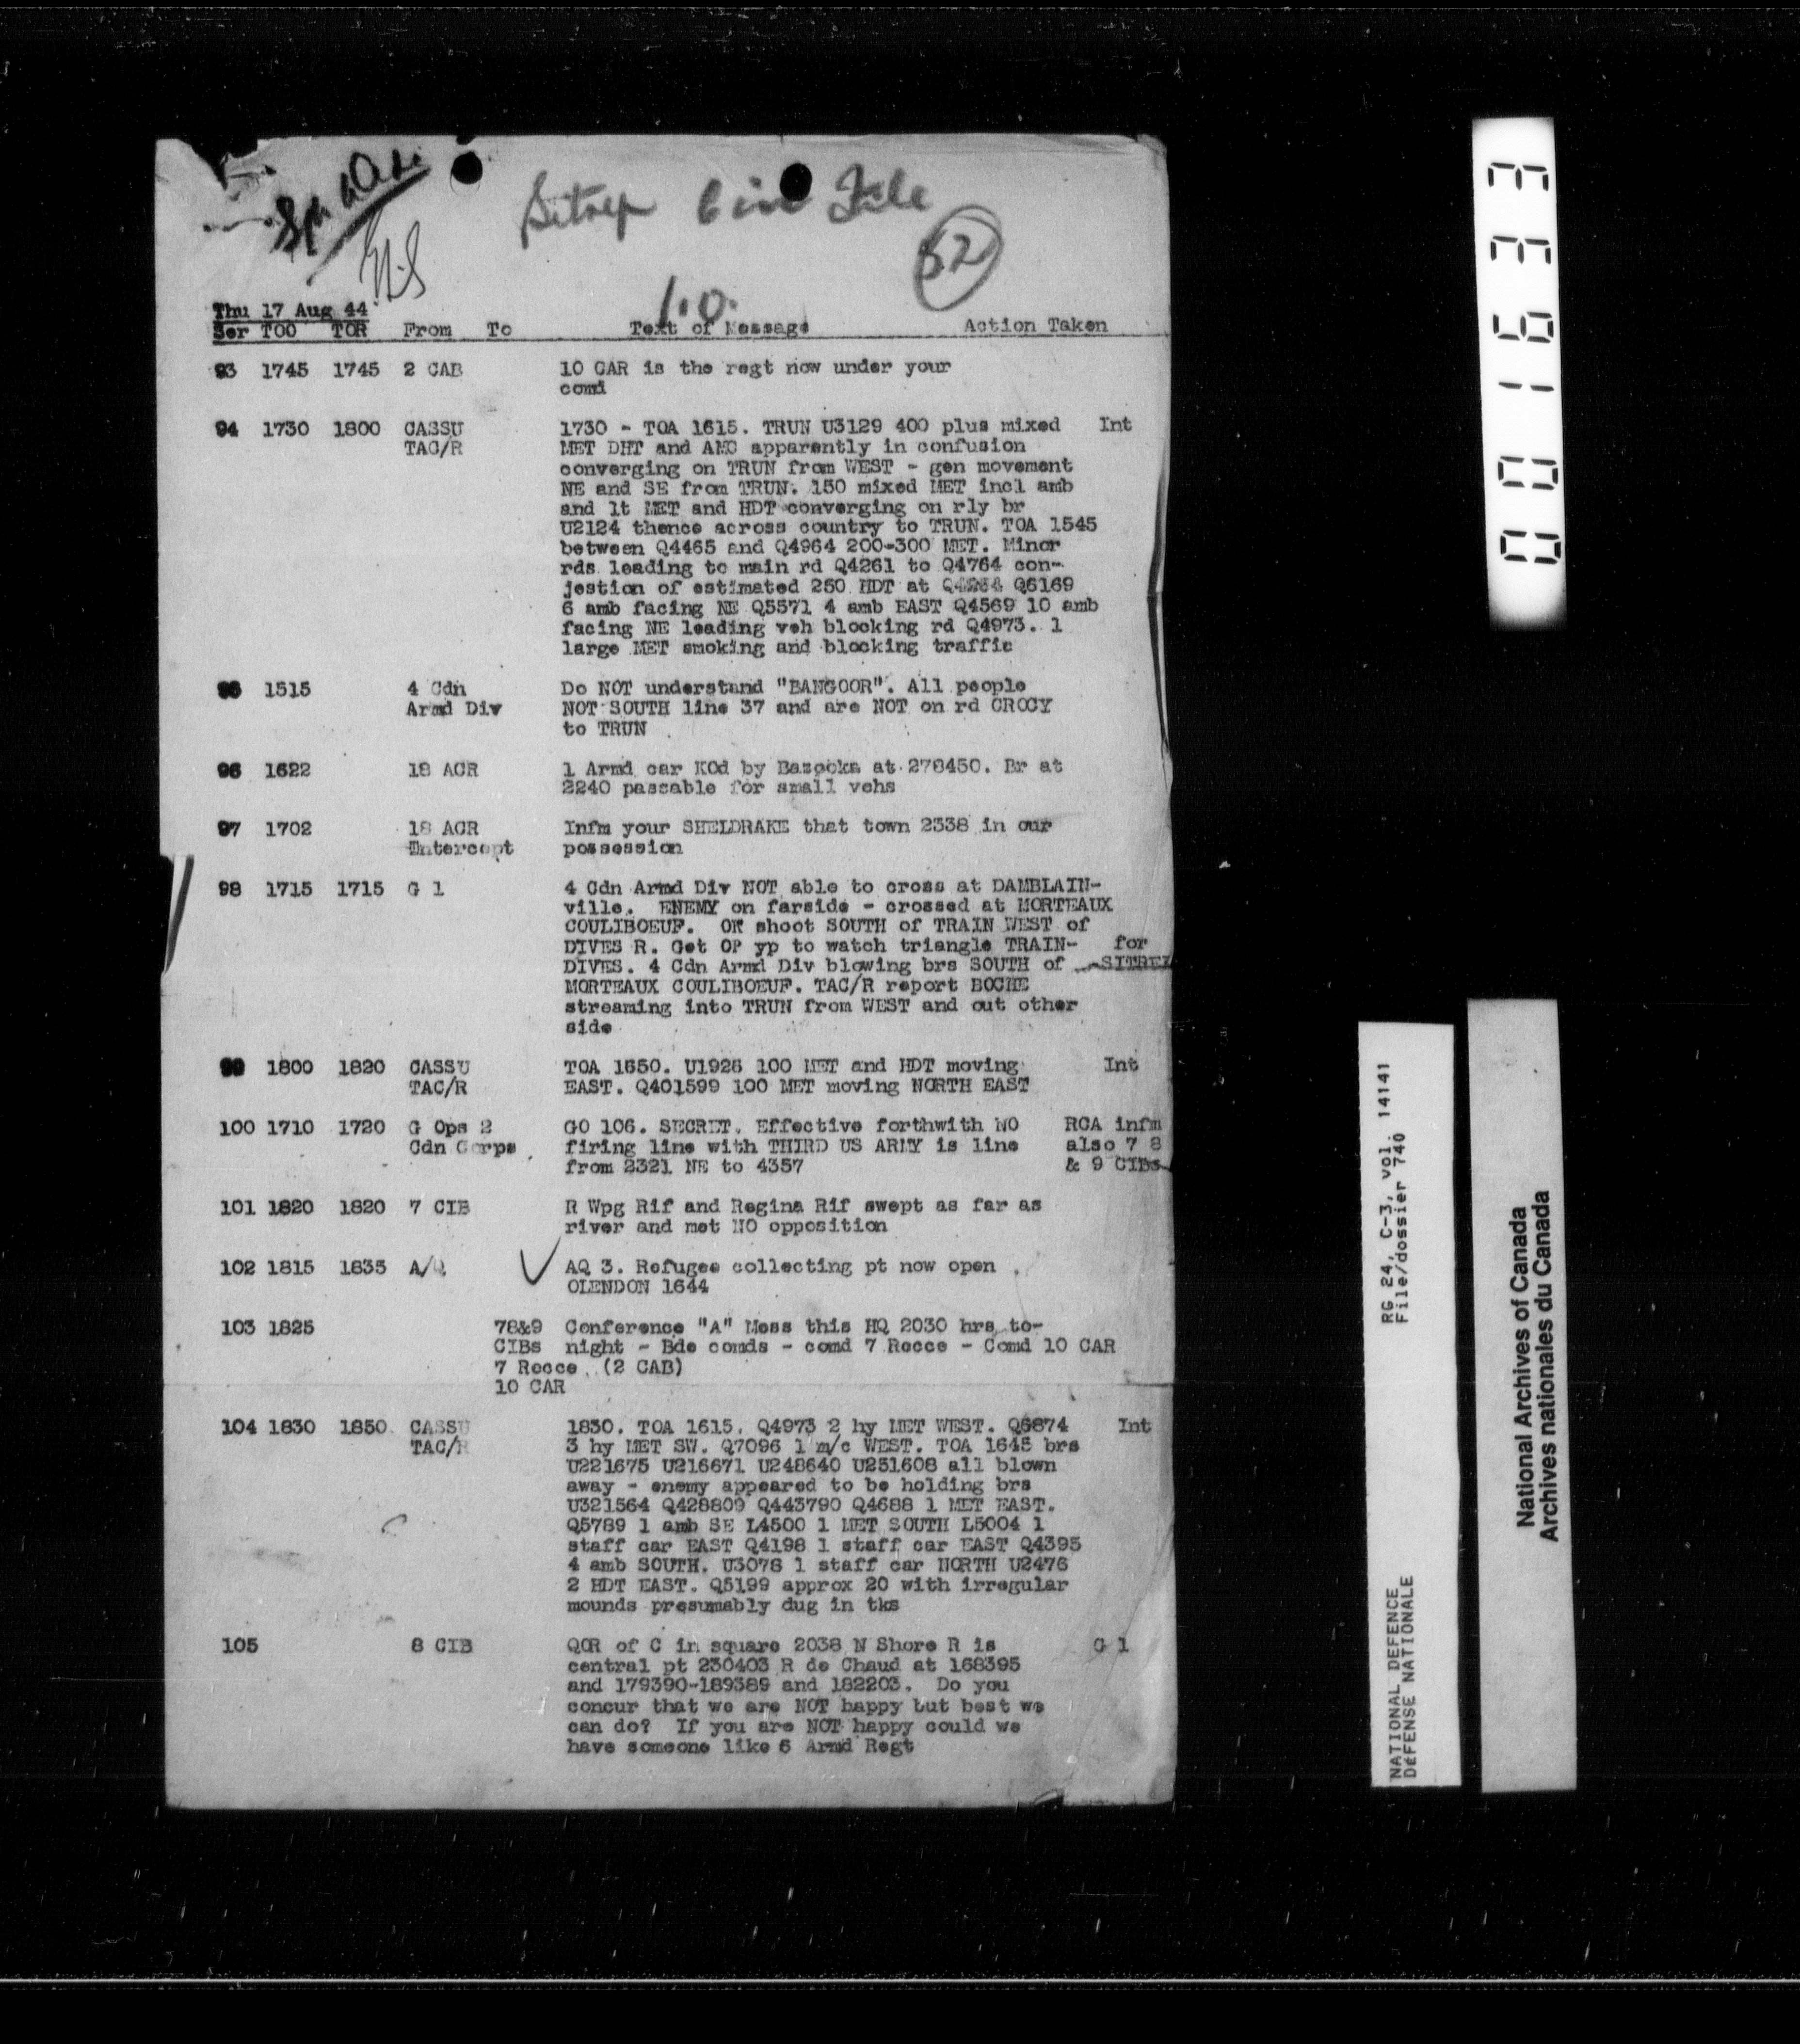 Sitrep Circ File
52
1.0.
Thu 17 Aug 44
Ser TOO TOR From To Text of Message Action Taken
93 1745 1745 2 CAB 10 CAR is the regt now under your
comd
94 1730 1800 CASSU 1730 - TOA 1615. TRUN U3129 400 plus mixed Int
TAC/R MET DHT and AMC apparently in confusion
converging on TRUN from WEST - gen movement
NE and SE from TRUN. 150 mixed MET incl amb
and lt MET and HDT converging on rly br
U2124 thence across country to TRUN. TOA 1545
between Q4465 and Q4964 200-300 MET. Minor
rds leading to main rd Q4261 to Q4764 con-
jestion of estimated 250 HDT at Q6169
6 amb facing NE Q5571 4 amb EAST Q4569 10 amb
facing NE leading veh blocking rd Q4973. 1
large MET smoking and blocking traffic
95 1515 4 Cdn Do NOT understand "BANGOOR". All people
Armd Div NOT SOUTH line 37 and are NOT on rd CROCY
to TRUN
96 1622 18 ACR 1 Armd car KOd by Bazooka at 278450. Br at
2240 passable for small vehs
97 1702 18 ACR Infm your SHELDRAKE that town 2338 in our
Intercept possession
98 1715 1715 G 1 4 Cdn Armd Div NOT able to cross at DAMBLAIN-
ville. ENEMY on farside - crossed at MORTEAUX
COULIBOEUF. OK shoot SOUTH of TRAIN WEST of
DIVES R. Get OP yp to watch triangle TRAIN- for
DIVES. 4 Cdn Armd Div blowing brs SOUTH of SITREP
MORTEAUX COULIBOEUF. TAC/R report BOCHE
streaming into TRUN from WEST and out other
side
99 1800 1820 CASSU TOA 1650. U1926 100 MET and HDT moving Int
TAC/R EAST. Q401599 100 MET moving NORTH EAST
100 1710 1720 G Ops 2 GO 106. SECRET. Effective forthwith NO RCA infm
Cdn Corps firing line with THIRD US ARMY is line also 7 8
from 2321 NE to 4357 & 9 CIBs
101 1820 1820 7 CIB R Wpg Rif and Regina Rif swept as far as
river and met NO opposition
102 1815 1835 A/Q AQ 3. Refugee collecting pt now open
OLENDON 1644
103 1825 78&9 Conference "A" Mess this HQ 2030 hrs to-
CIBs night - Bde comds - comd 7 Recce - Comd 10 CAR
7 Recce (2 CAB)
10 CAR
104 1830 1850 CASSU 1830. TOA 1615. Q4973 2 hy MET WEST. Q6874 Int
TAC/R 3 hy MET SW. Q7096 1 m/c WEST. TOA 1645 brs
U221675 U216671 U248640 U251608 all blown
away - enemy appeared to be holding brs
U321564 Q428809 Q443790 Q4688 1 MET EAST.
Q5789 1 amb SE L4500 1 MET SOUTH L5004 1
staff car EAST Q4198 1 staff car EAST Q4395
4 amb SOUTH. U3078 1 staff car NORTH U2476
2 HDT EAST. Q5199 approx 20 with irregular
mounds presumably dug in tks
105 8 CIB QOR of C in square 2038 N Shore R is G 1
central pt 230403 R de Chaud at 168395
and 179390-189389 and 182203. Do you
concur that we are NOT happy but best we
can do? If you are NOT happy could we
have someone like 6 Armd Regt
001633
RG 24, C-3, vol. 14141
File/dossier 740
NATIONAL DEFENCE
DÉFENSE NATIONALE
National Archives of Canada
Archives nationales du Canada